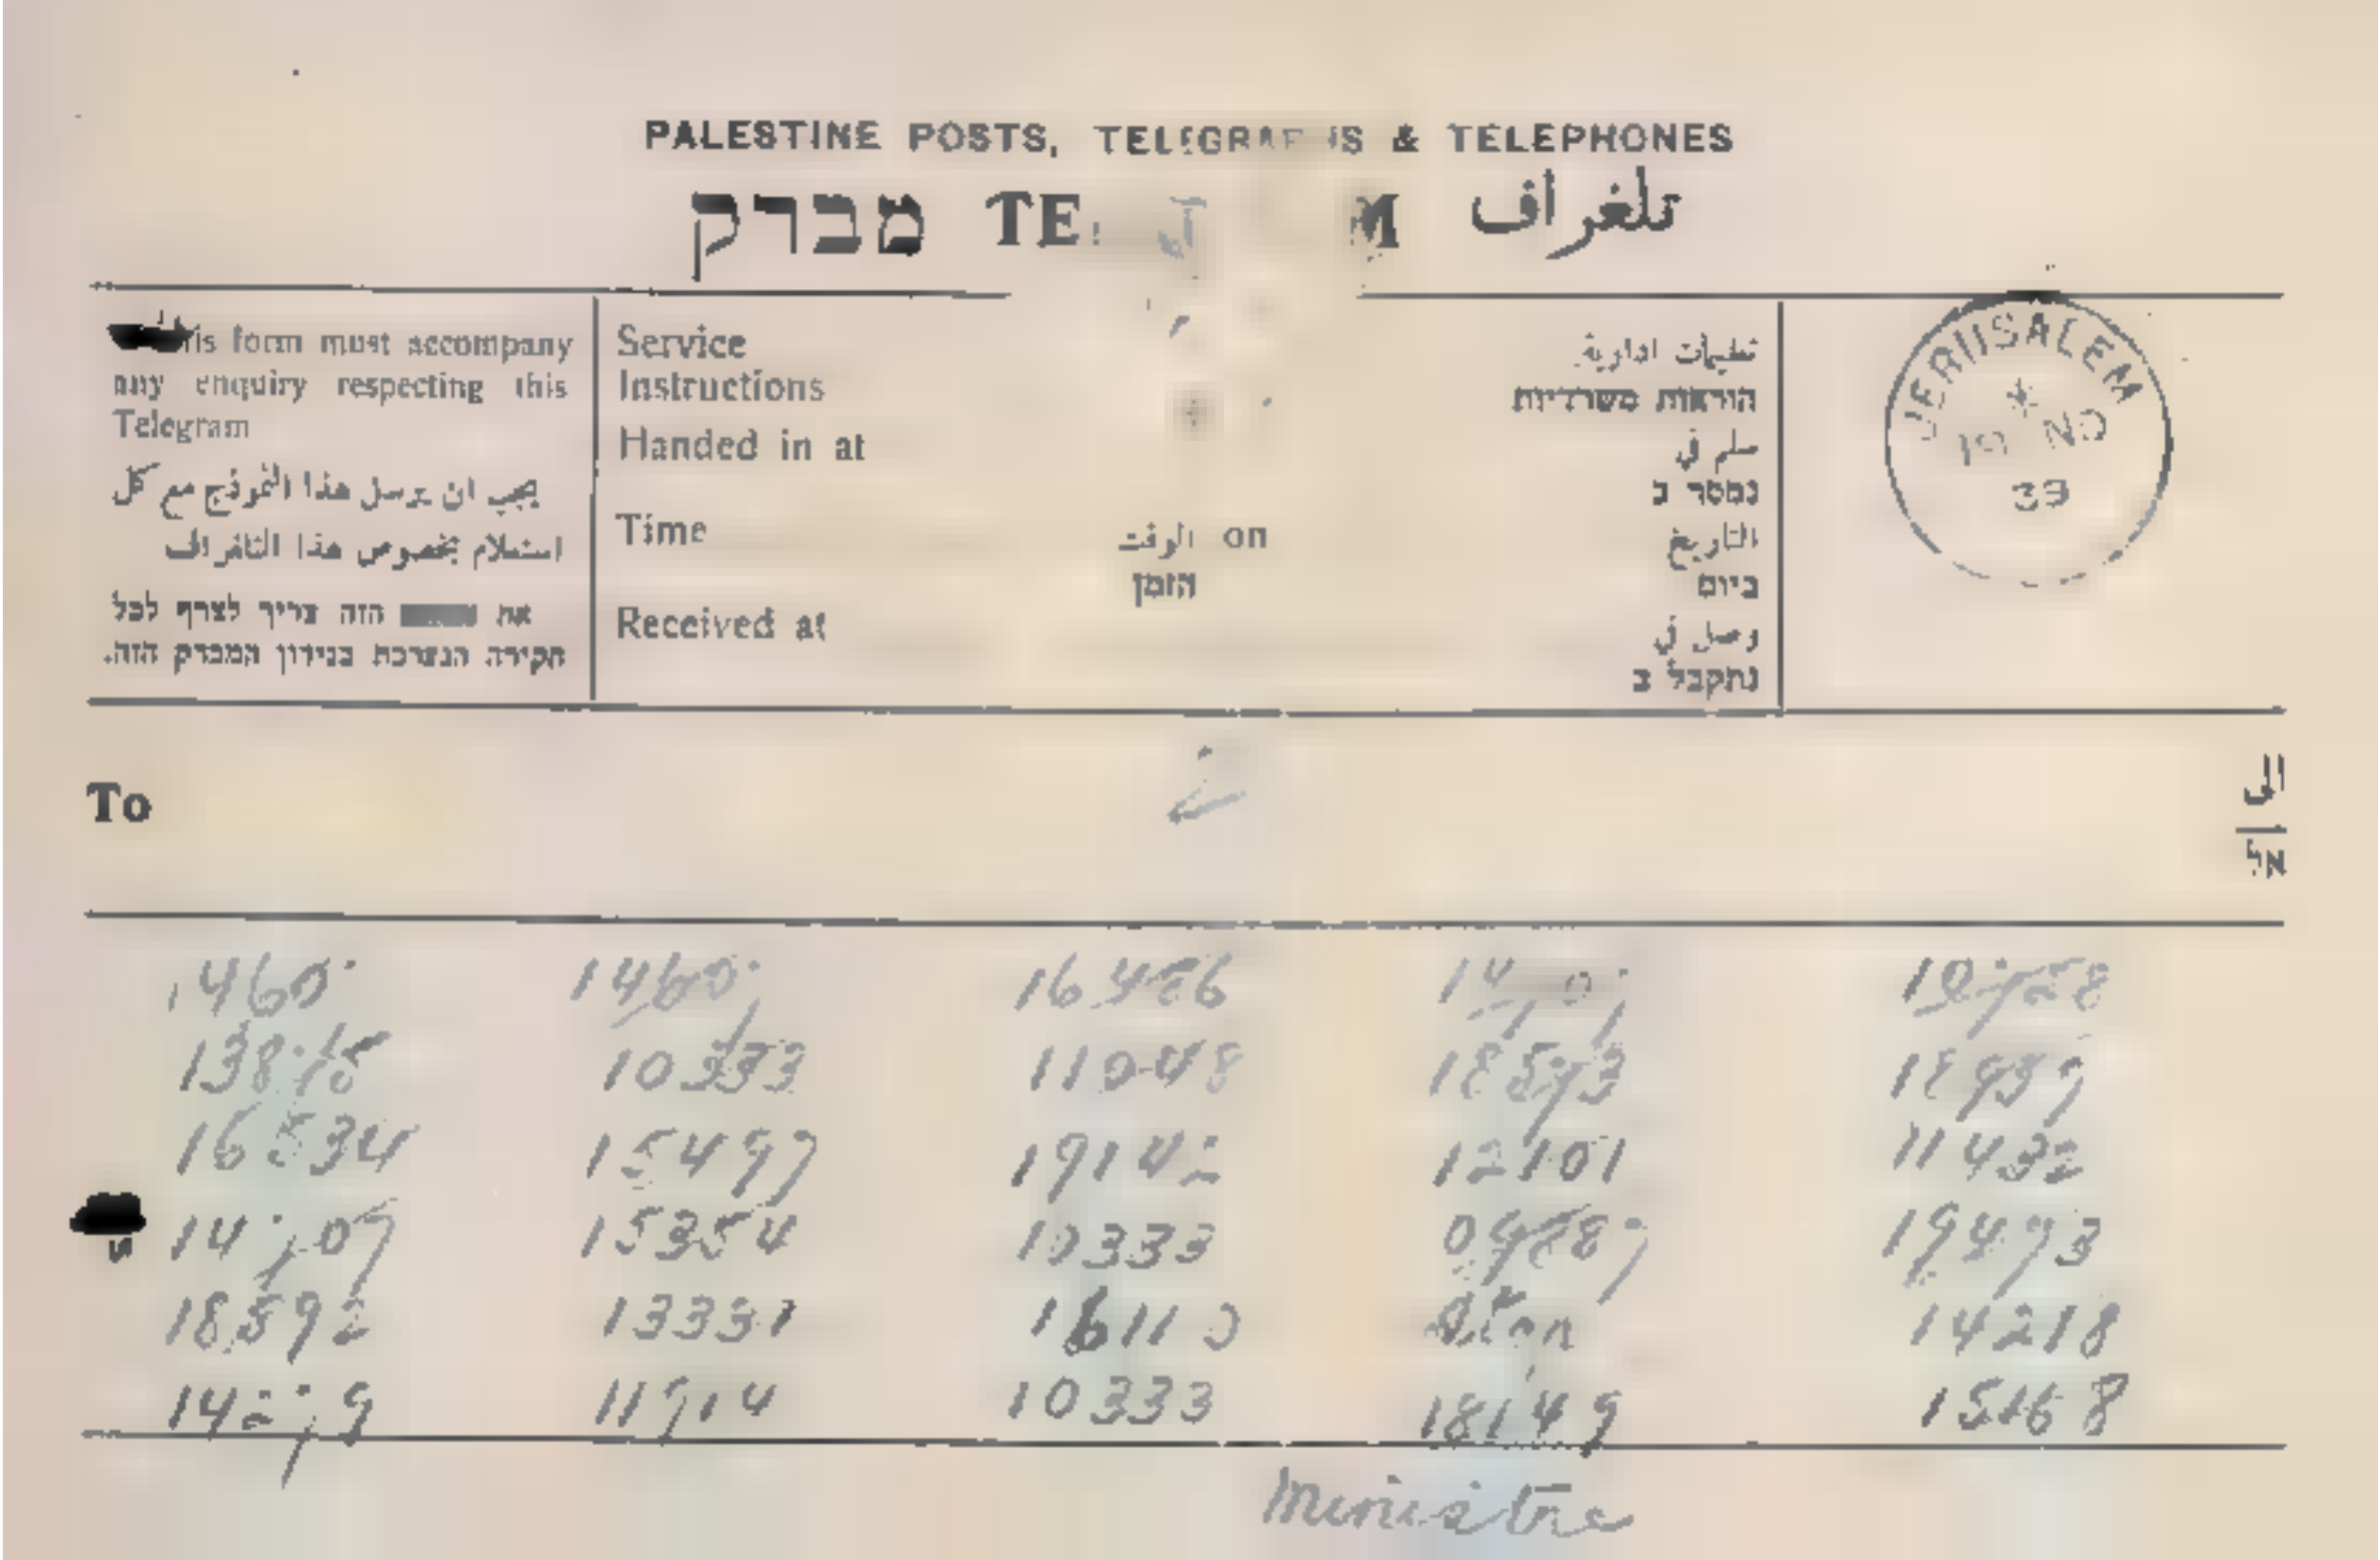 PALESTINE POSTS, TELEGRAPHS & TELEPHONES
מברק TELEGRAM تلغراف
This form must accompany
any enquiry respecting this
Telegram
يجب ان يرسل هذا النموذج مع كل
استعلام بخصوص هذا التلغراف
את הזה צריך לצרף לכל
חקירה הנערכת בנידון המברק הזה.
Service
Instructions
Handed in at
Time
Received at
الوقت on
הזמן
تعليمات ادارية
הוראות משרדיות
سلم في
נמסר ב
التاريخ
ביום
وصل في
נתקבל ב
JERUSALEM
39
To
الى
אל
10333 11048
16534 15497 19142 12101 11432
15354 10333 19493
18592 13331 16110 14218
11914 10333 18149 15168
Ministre